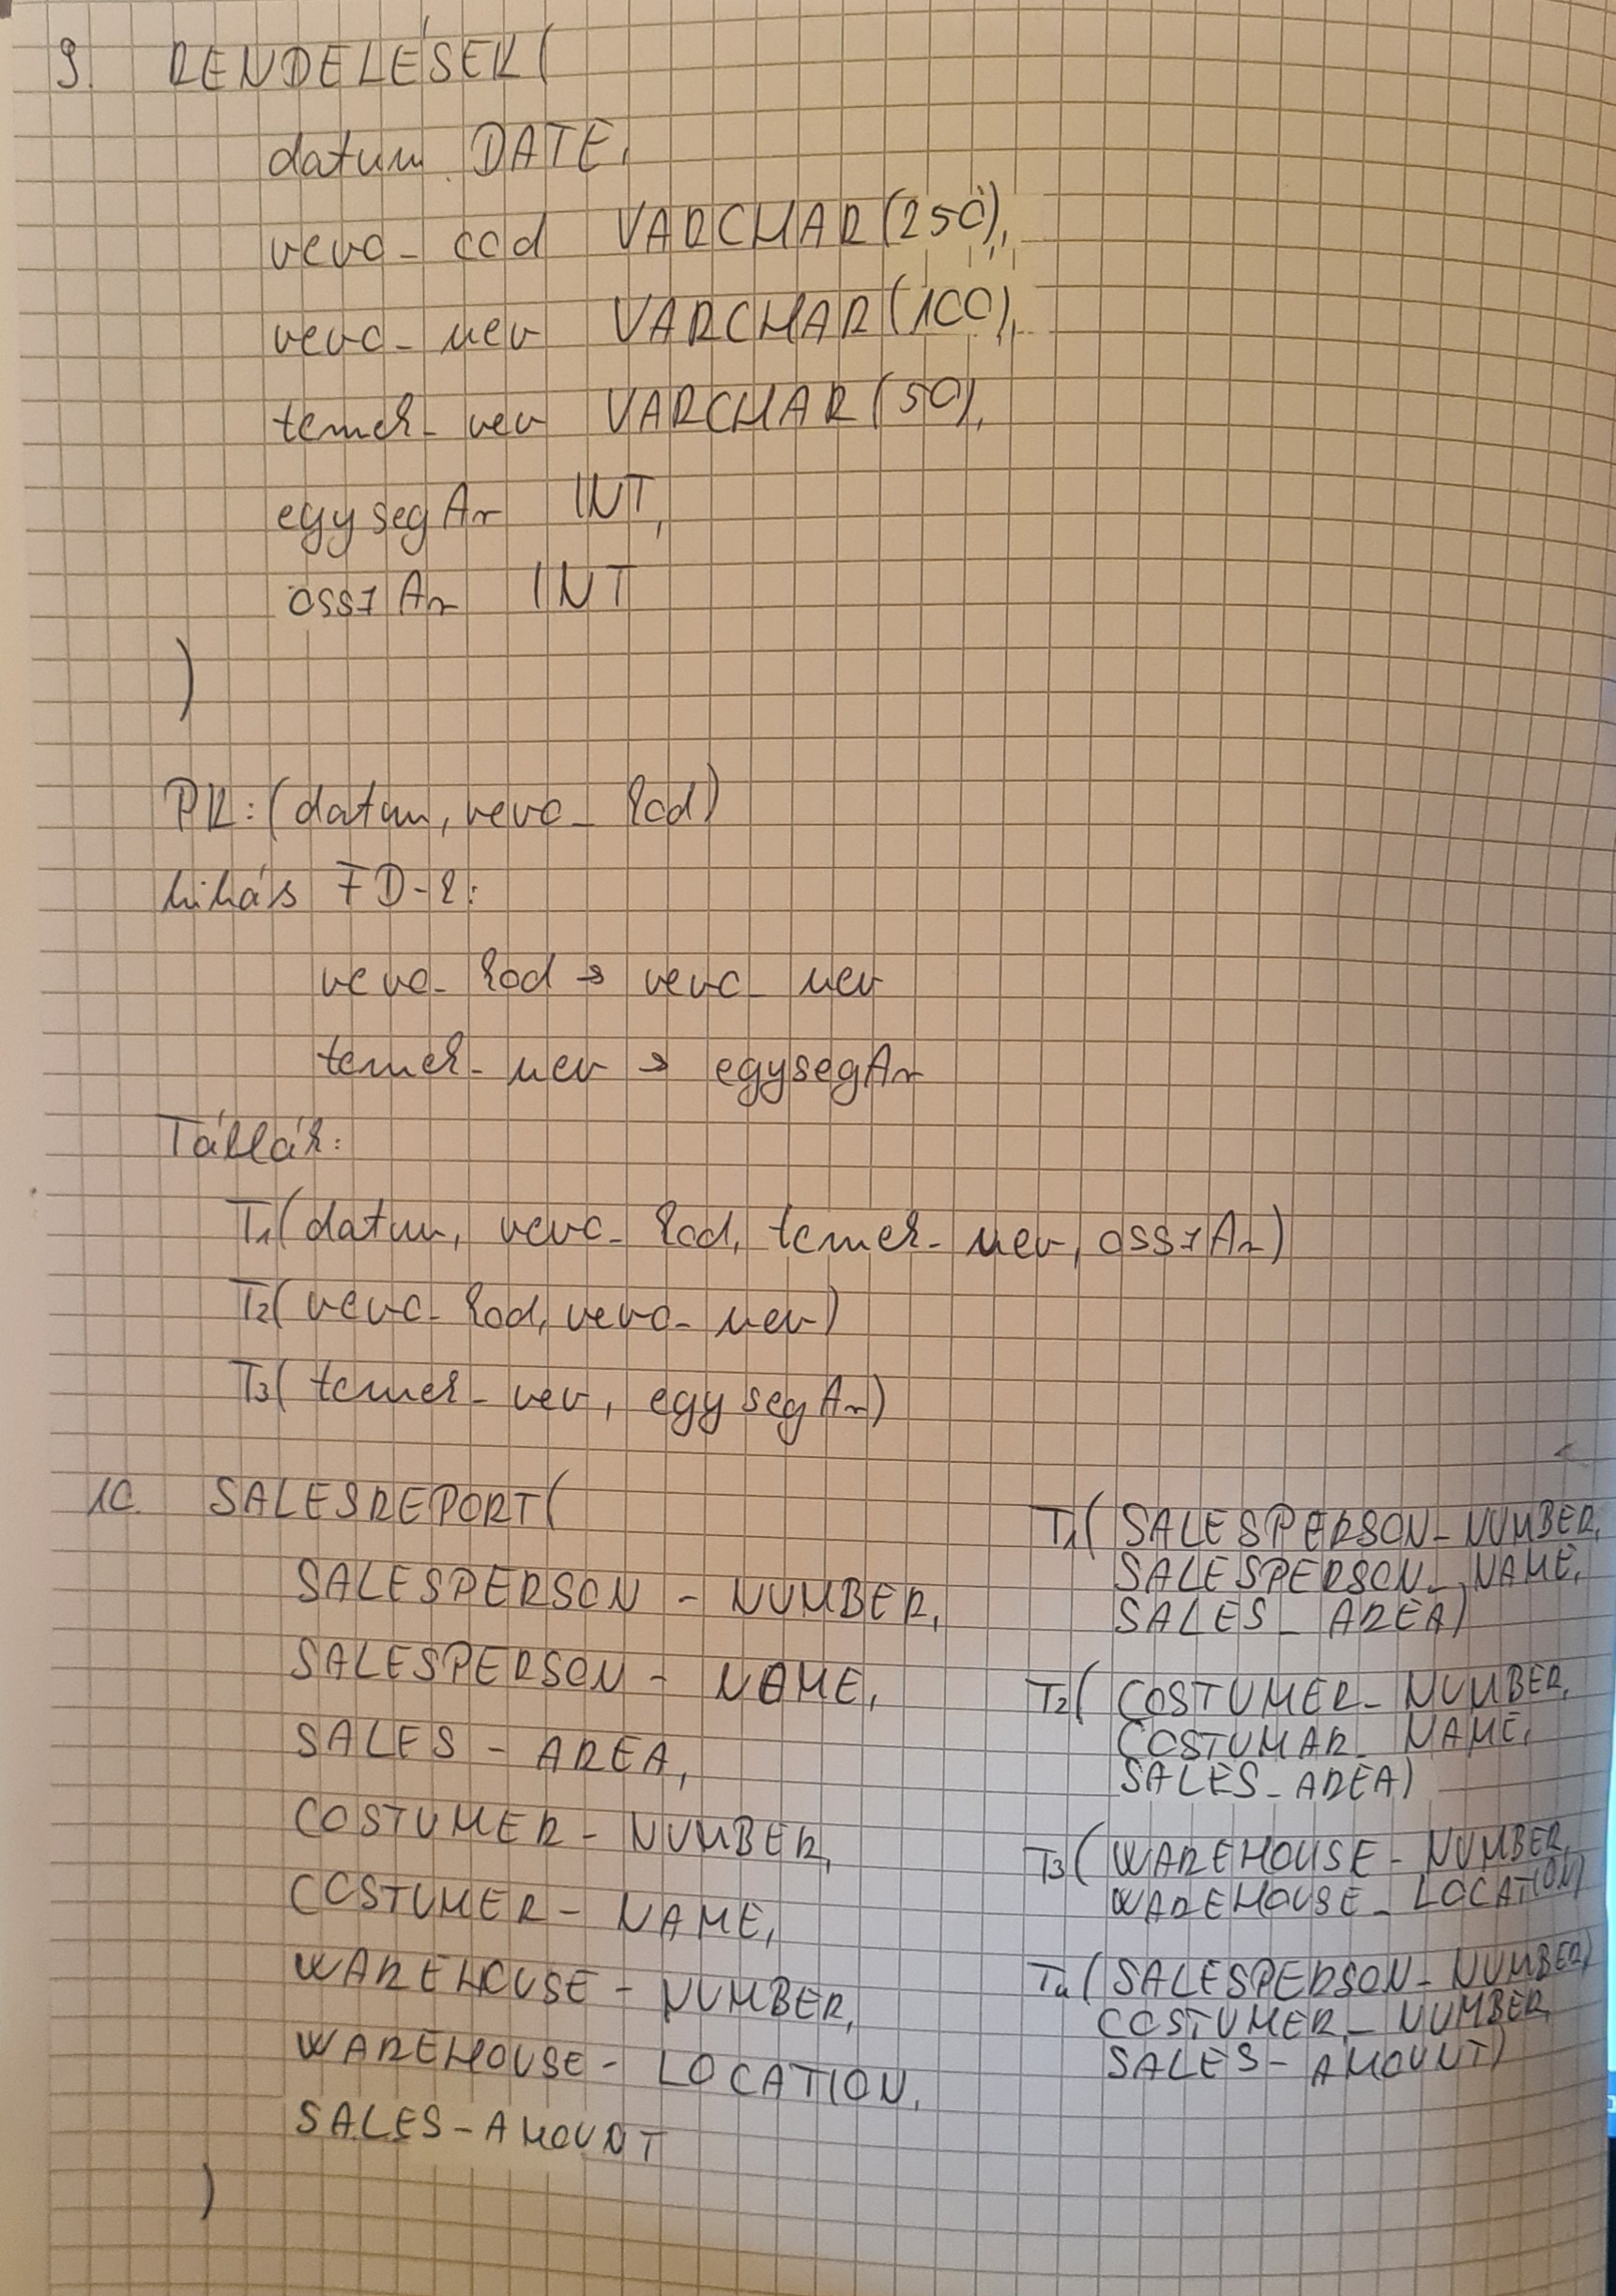 9. RENDELÉSEK(
datum DATE,
vevo_cod VARCHAR(250),
vevo_nev VARCHAR(100),
termek_nev VARCHAR(50),
egysegAr INT,
osszAr INT
)
PK:(datum, vevo_kod)
hibás FD-k:
vevo_kod → vevo_nev
termek_nev → egysegAr
Táblák:
T1(datum, vevo_kod, termek_nev, osszAr)
T2(vevo_kod, vevo_nev)
T3(termek_nev, egysegAr)
10. SALESREPORT(
SALESPERSON-NUMBER,
SALESPERSON-NAME,
SALES-AREA,
COSTUMER-NUMBER,
COSTUMER-NAME,
WAREHOUSE-NUMBER,
WAREHOUSE-LOCATION,
SALES-AMOUNT
)
T1(SALESPERSON_NUMBER,
SALESPERSON_NAME,
SALES_AREA)
T2(COSTUMER_NUMBER,
COSTUMAR_NAME,
SALES_AREA)
T3(WAREHOUSE-NUMBER,
WAREHOUSE_LOCATION)
T4(SALESPERSON-NUMBER,
COSTUMER_NUMBER,
SALES-AMOUNT)